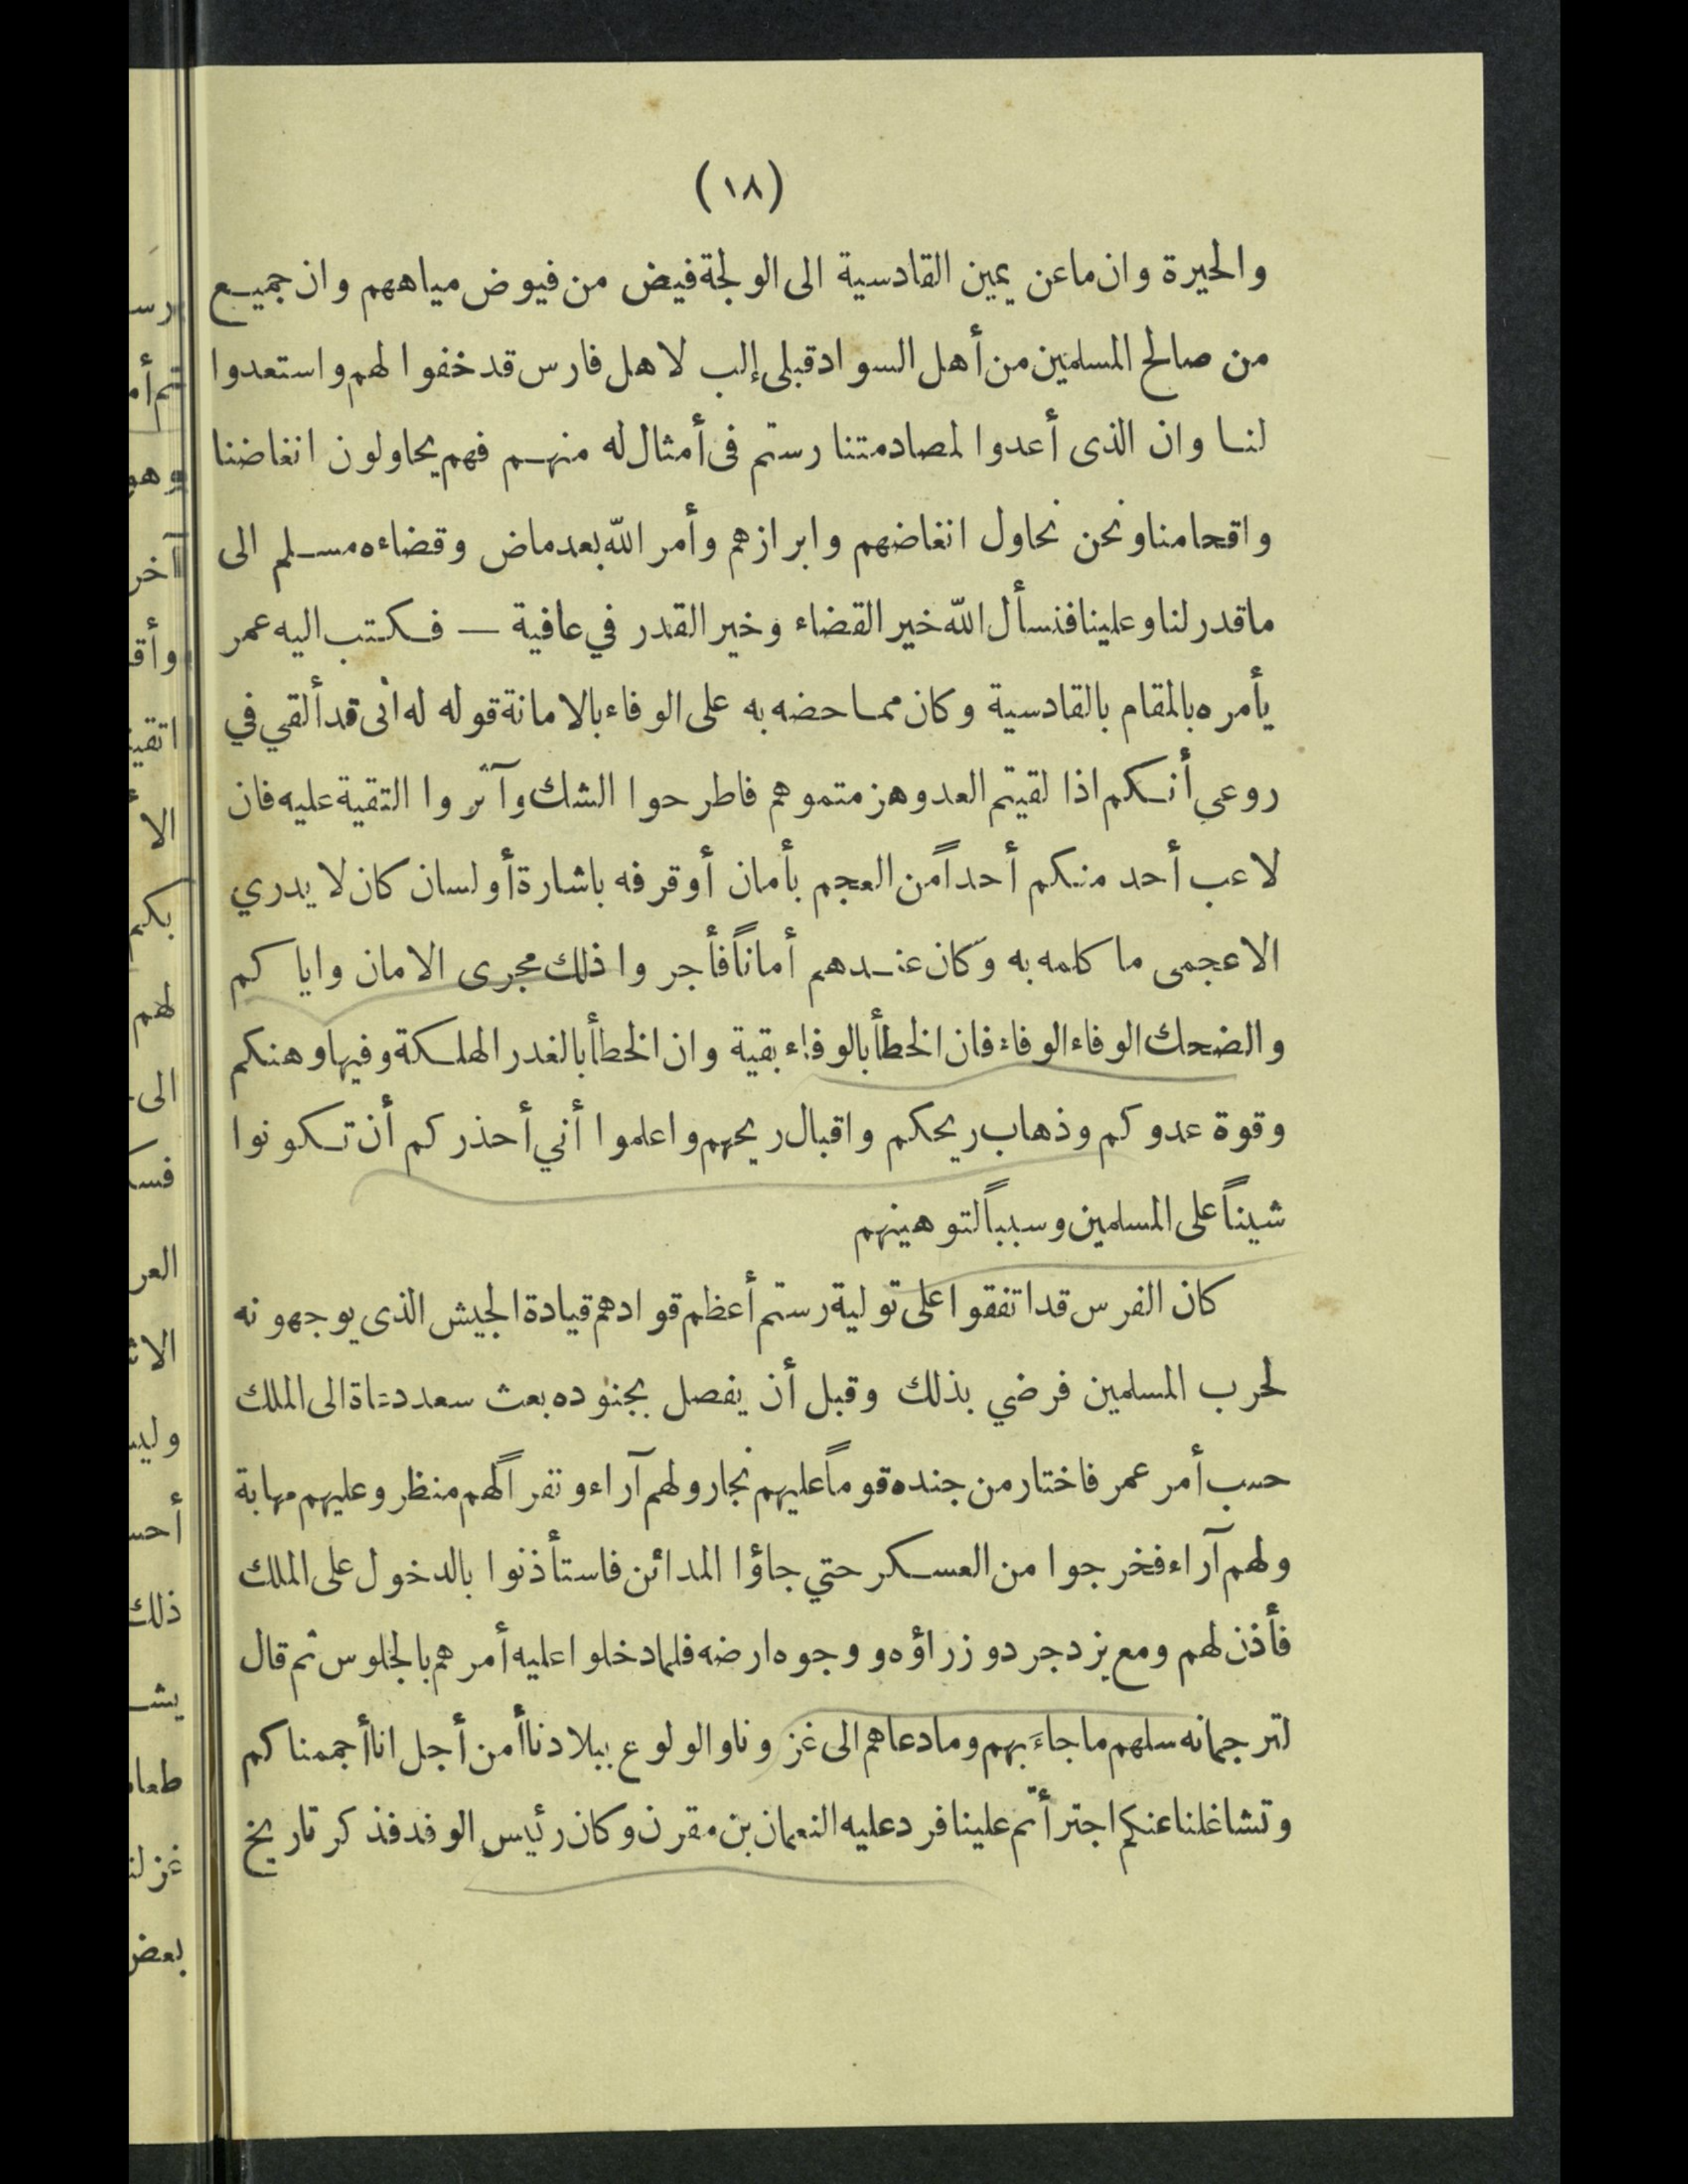 (١٨)
والحيرة وان ماعن يمين القادسية الى الولجة فيض من فيوض مياههم وان جميع
من صالح المسلمين من أهل السواد قبلى إلب لاهل فارس قد خفوا لهم واستعدوا
لنا وان الذى أعدوا لمصادمتنا رستم فى أمثال له منهم فهم يحاولون انغاضنا
واقحامنا ونحن نحاول انغاضهم وابرازهم وأمر الله بعد ماض وقضاءه مسلم الى
ماقدر لنا وعلينا فنسأل الله خير القضاء وخير القدر في عافية — فكتب اليه عمر
يأمره بالمقام بالقادسية وكان مما حضه به على الوفاء بالامانة قوله له انى قد ألقي في
روعي أنكم اذا لقيتم العدو هزمتموهم فاطرحوا الشك وآثروا التقية عليه فان
لاعب أحد منكم أحداً من العجم بأمان أو قرفه باشارة أو لسان كان لا يدري
الاعجمى ما كلمه به وكان عندهم أماناً فأجروا ذلك مجرى الامان واياكم
والضحك الوفاء الوفاء فان الخطأ بالوفاء بقية وان الخطأ بالغدر الهلكة وفيها وهنكم
وقوة عدوكم وذهاب ريحكم واقبال ريحهم واعلموا أني أحذركم أن تكونوا
شيناً على المسلمين وسبباً لتوهينهم
كان الفرس قد اتفقوا على تولية رستم أعظم قوادهم قيادة الجيش الذى يوجهونه
لحرب المسلمين فرضي بذلك وقبل أن يفصل بجنوده بعث سعد دعاة الى الملك
حسب أمر عمر فاختار من جنده قوماً عليهم نجار ولهم آراء ونفراً لهم منظر وعليهم مهابة
ولهم آراء فخرجوا من العسكر حتي جاؤا المدائن فاستأذنوا بالدخول على الملك
فأذن لهم ومع يزدجرد وزراؤه و وجوه ارضه فلما دخلوا عليه أمرهم بالجلوس ثم قال
لترجمانه سلهم ما جاءَ بهم وما دعاهم الى غزونا والولوع ببلادنا أمن أجل انا أجممناكم
وتشاغلنا عنكم اجترأتم علينا فرد عليه النعمان بن مقرن وكان رئيس الوفد فذكر تاريخ